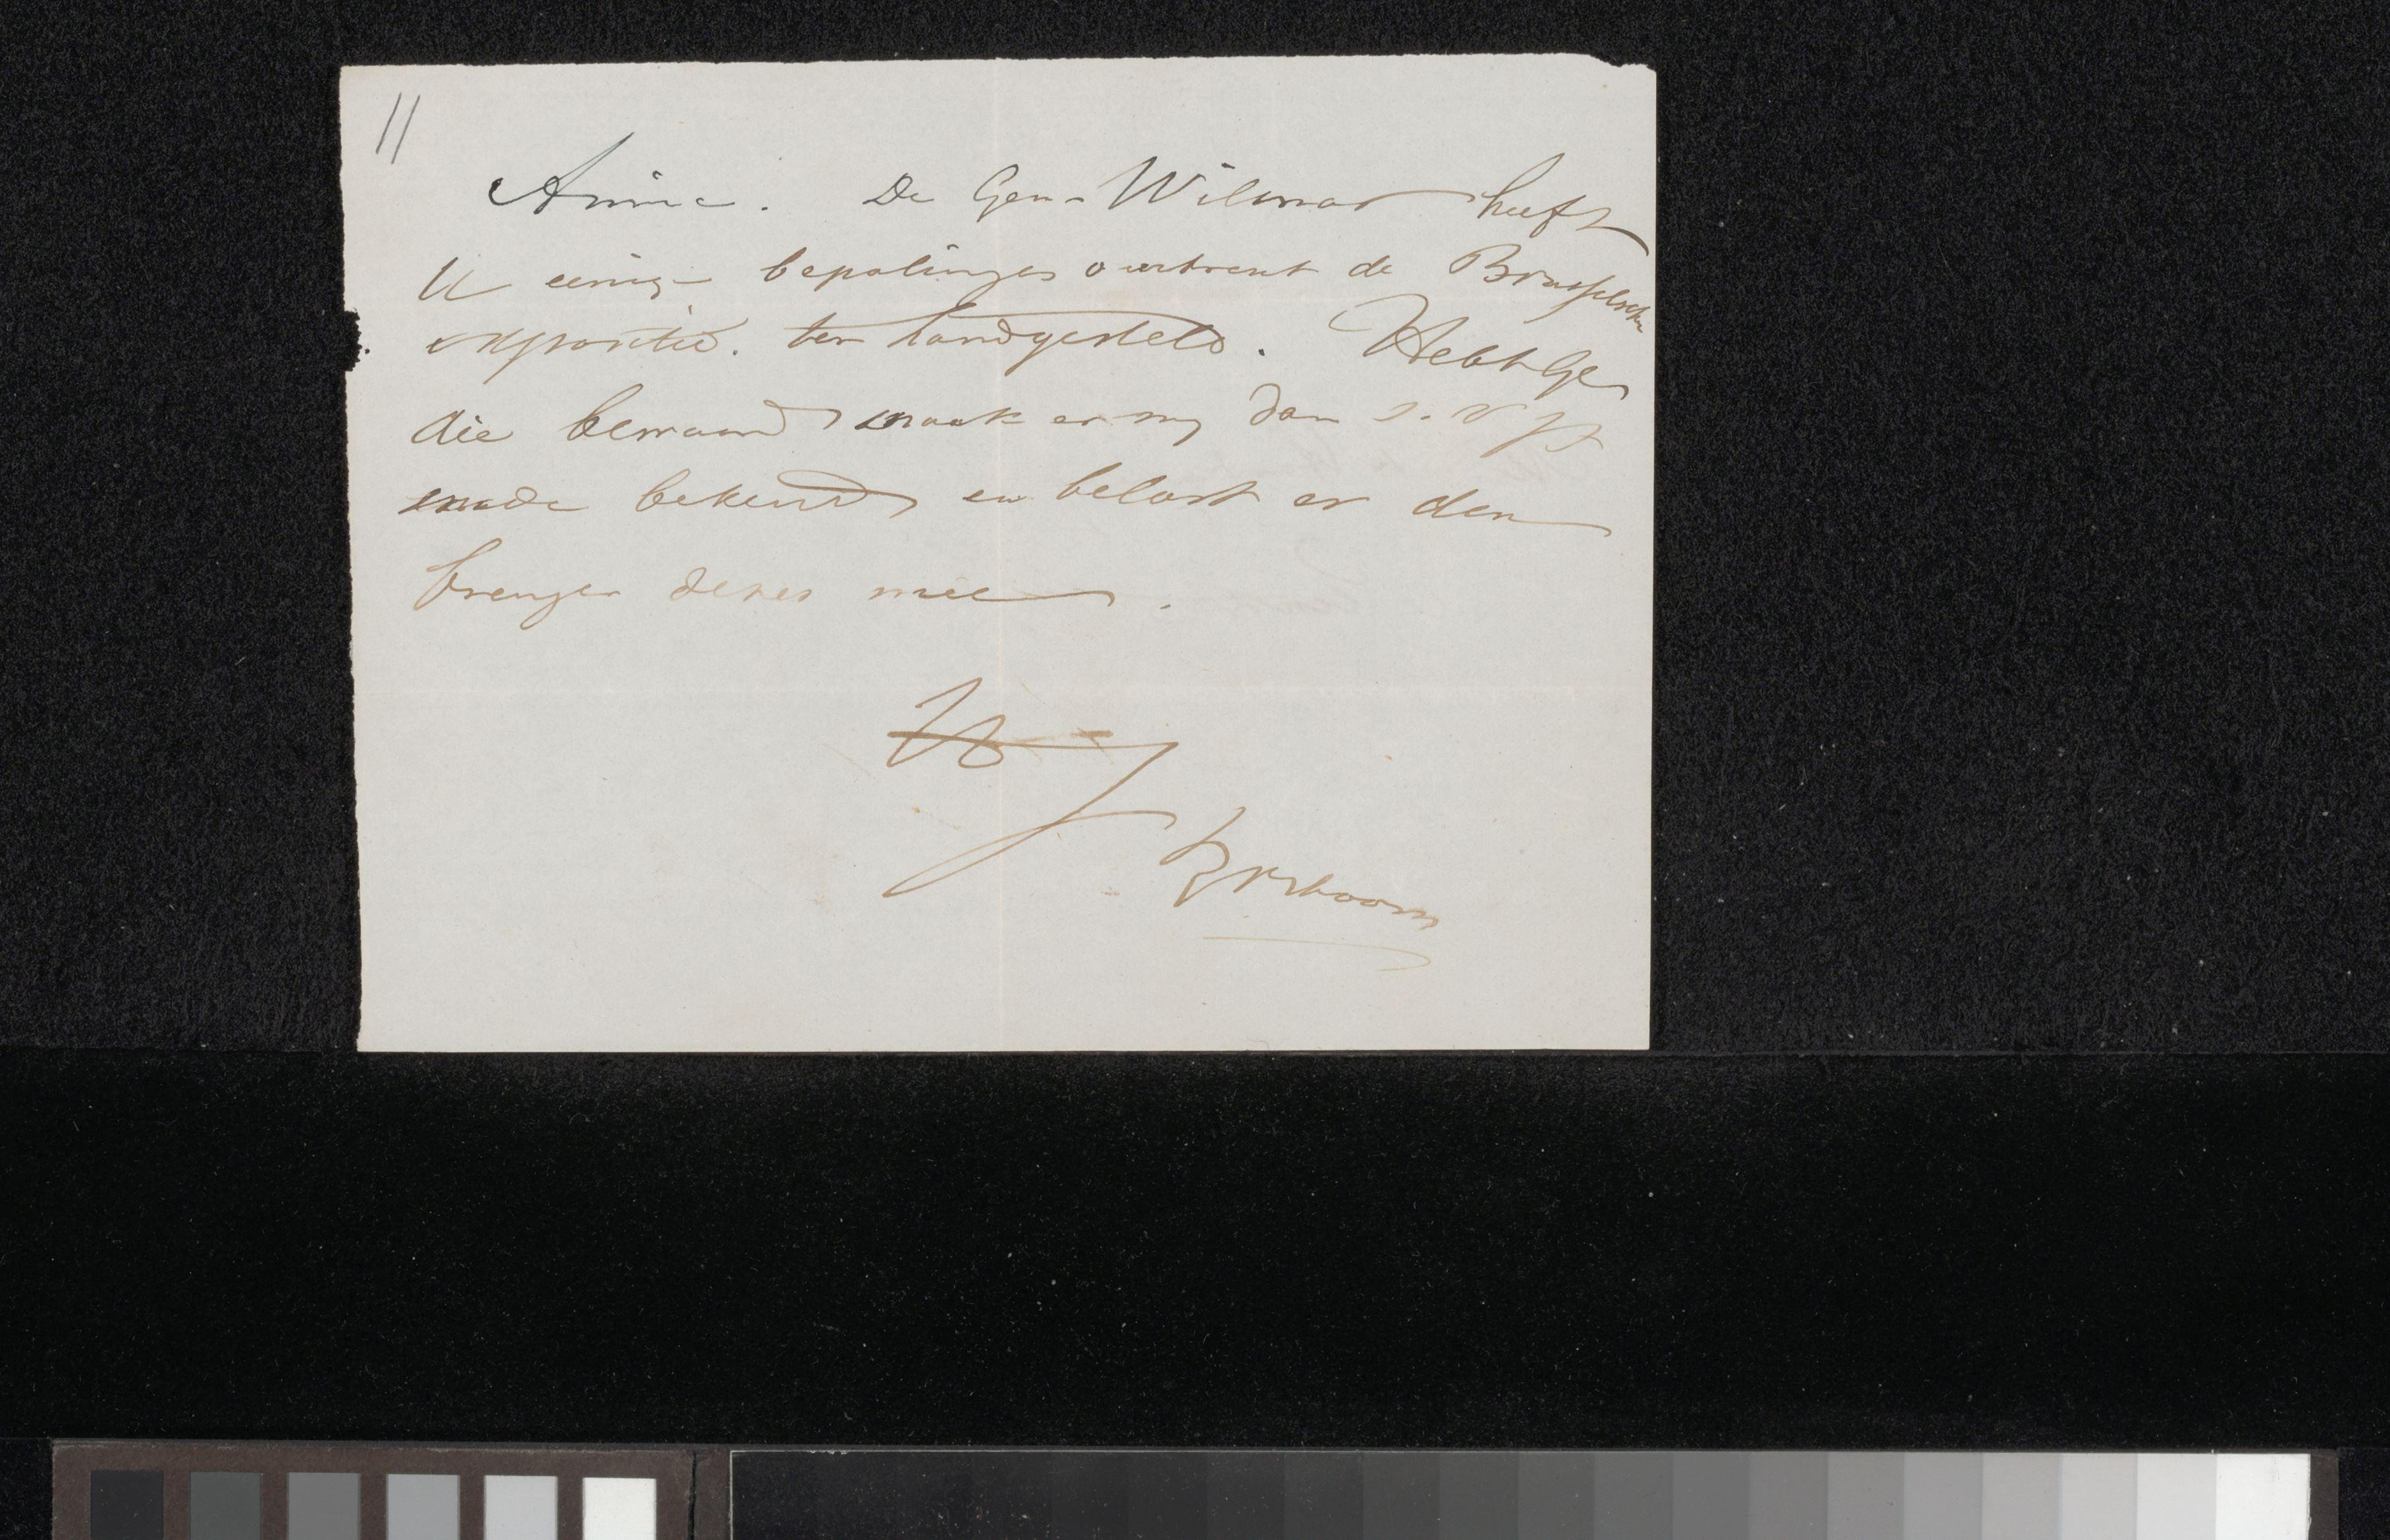 11
Amice. De Gen. Wilmar heeft
U eenige bepalingen omtrent de Brusselsche
expositie. ter hand gesteld. Hebt Ge
die bewaard maak er my dan s.v.p.
mede bekend en belast er den
brenger dezes mee.
W J